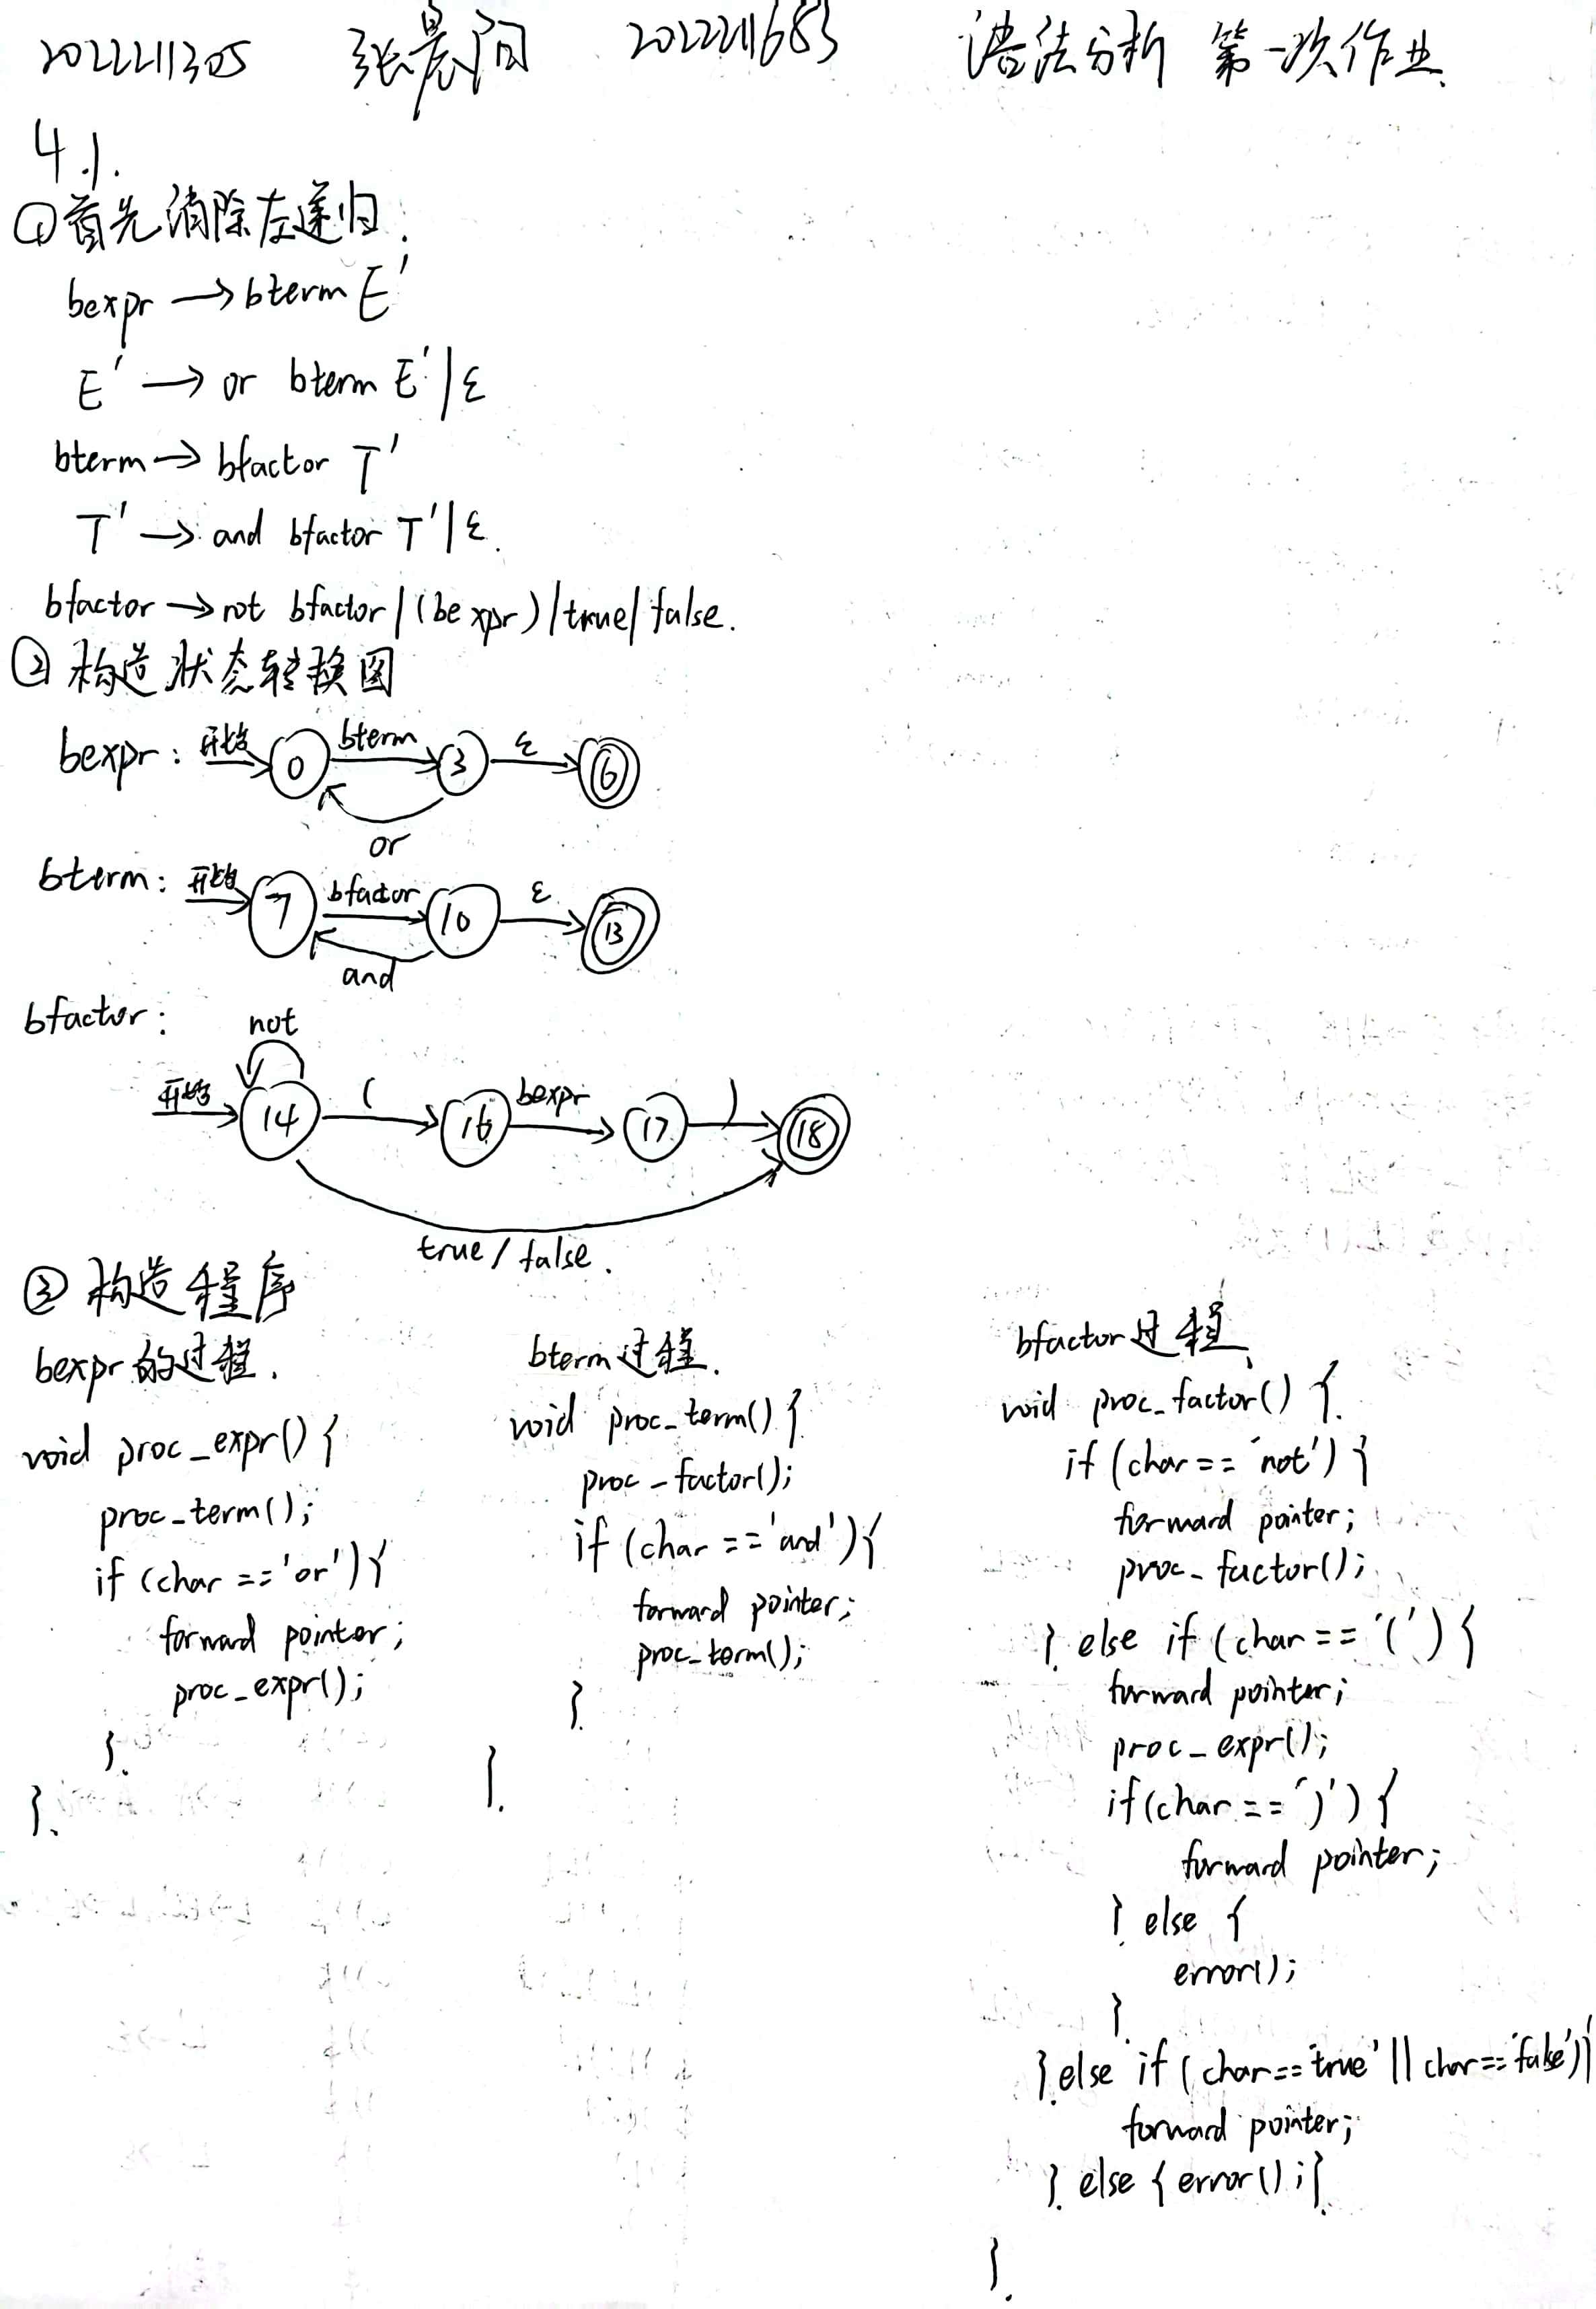 2022211305 张晨阳 2022211683 语法分析 第一次作业.
4.1.
①首先消除左递归:
bexpr → bterm E'
E' → or bterm E' | ε
bterm → bfactor T'
T' → and bfactor T' | ε.
bfactor → not bfactor | (bexpr) | true | false.
② 构造状态转换图
bexpr: 开始 0 bterm 3 ε 6
or
bterm: 开始 7 bfactor 10 ε 13
and
bfactor: not
开始 14 ( 16 bexpr 17 ) 18
true / false.
③ 构造程序
bexpr的过程.
void proc_expr() {
proc_term();
if (char == 'or') {
forward pointer;
proc_expr();
}.
}.
bterm过程.
void proc_term() {
proc_factor();
if (char == 'and') {
forward pointer;
proc_term();
}.
}.
bfactor过程.
void proc_factor() {.
if (char == 'not') {
forward pointer;
proc_factor();
} else if (char == '(') {
forward pointer;
proc_expr();
if (char == ')') {
forward pointer;
} else {
error();
}.
} else if (char == 'true' || char == 'false') {
forward pointer;
} else { error(); }
}.